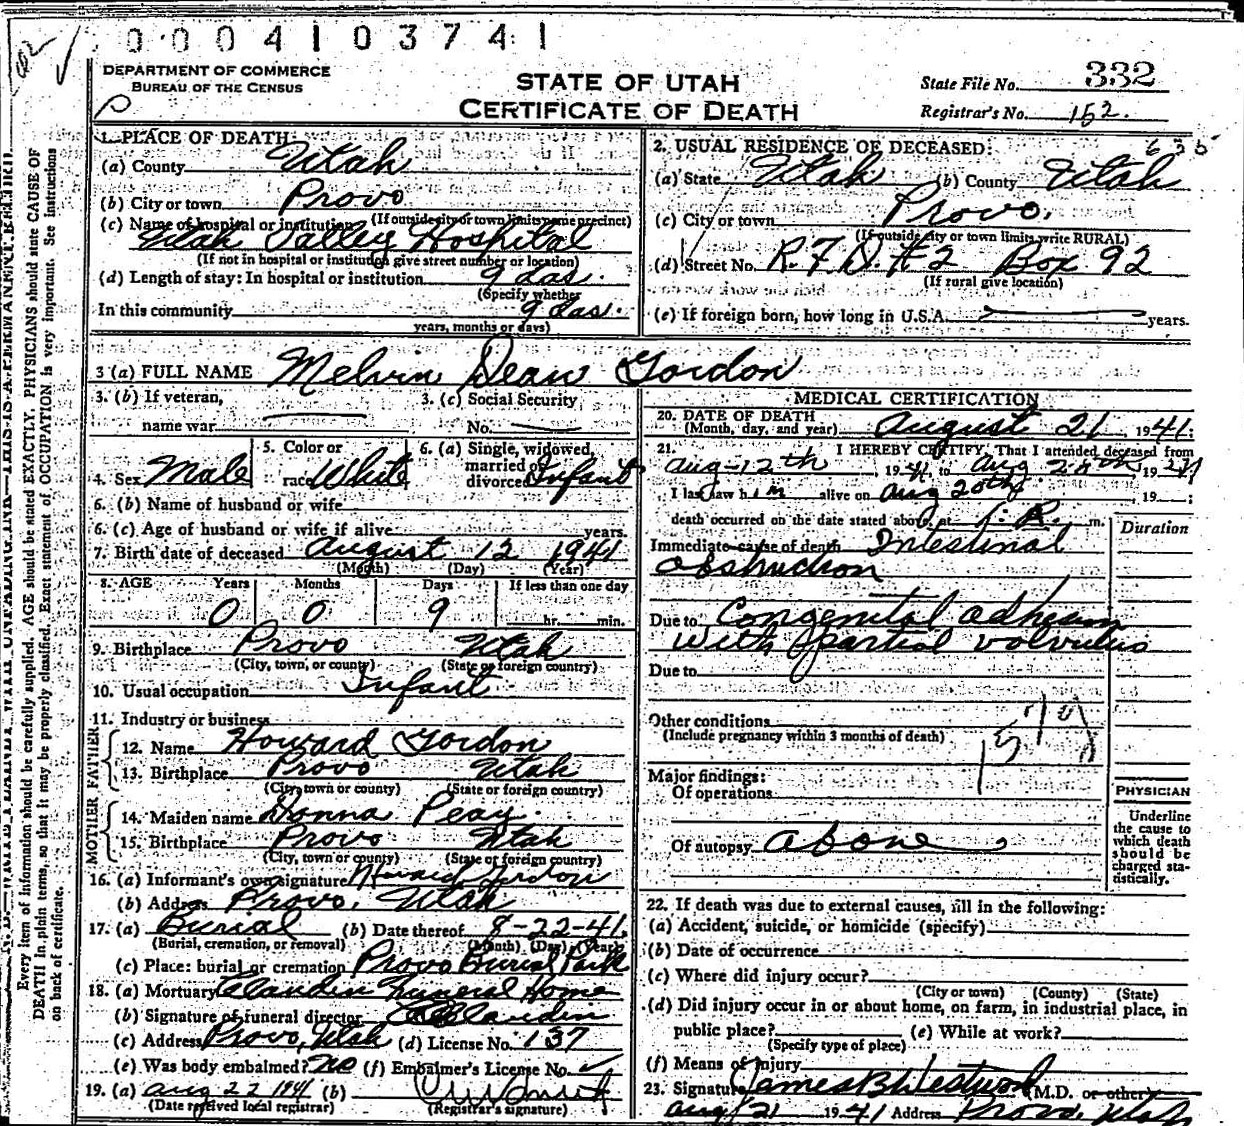 0004103741
DEPARTMENT OF COMMERCE
BUREAU OF THE CENSUS
STATE OF UTAH
CERTIFICATE OF DEATH
State File No. 332
Registrar's No. 152.
1. PLACE OF DEATH:
(a) County Utah
(b) City or town Provo
(If outside city or town limits name precinct)
(c) Name of hospital or institution
Utah Valley Hospital
(If not in hospital or institution give street number or location)
(d) Length of stay: In hospital or institution 9 das.
(Specify whether
In this community 9 das.
years, months or days)
2. USUAL RESIDENCE OF DECEASED: 635
(a) State Utah (b) County Utah
(c) City or town Provo.
(If outside city or town limits write RURAL)
(d) Street No. R.F.D. #2 Box 92
(If rural give location)
(e) If foreign born, how long in U.S.A. years.
3 (a) FULL NAME Melvin Dean Gordon
3. (b) If veteran,
name war
3. (c) Social Security
No.
4. Sex Male
5. Color or
race White
6. (a) Single, widowed,
married or
divorced Infant
6. (b) Name of husband or wife
6. (c) Age of husband or wife if alive years.
7. Birth date of deceased August 12 1941
(Month) (Day) (Year)
8. AGE Years Months Days If less than one day
0 0 9 hr. min.
9. Birthplace Provo Utah
(City, town, or county) (State or foreign country)
10. Usual occupation Infant
11. Industry or business
FATHER
12. Name Howard Gordon
13. Birthplace Provo Utah
(City, town or county) (State or foreign country)
MOTHER
14. Maiden name Donna Peay
15. Birthplace Provo Utah
(City, town or county) (State or foreign country)
16. (a) Informant's own signature Howard Gordon
(b) Address Provo, Utah
17. (a) Burial (b) Date thereof 8-22-41
(Burial, cremation, or removal) (Month) (Day) (Year)
(c) Place: burial or cremation Provo Burial Park
18. (a) Mortuary Claudin Funeral Home
(b) Signature of funeral director Claudin
(c) Address Provo, Utah (d) License No. 137
(e) Was body embalmed? No (f) Embalmer's License No.
19. (a) Aug 22 1941 (b)
(Date received local registrar) (Registrar's signature)
MEDICAL CERTIFICATION
20. DATE OF DEATH
(Month, day, and year) August 21 1941:
21. I HEREBY CERTIFY, That I attended deceased from
Aug-12th, 1941, to Aug 20th, 1941
I last saw him alive on Aug 20th, 19 ;
death occurred on the date stated above, at m.
Duration
Immediate cause of death Intestinal
obstruction
Due to Congenital adhesions
with partial volvulus
Due to
Other conditions
(Include pregnancy within 3 months of death)
Major findings:
Of operations
Of autopsy above
PHYSICIAN
Underline
the cause to
which death
should be
charged sta-
tistically.
22. If death was due to external causes, fill in the following:
(a) Accident, suicide, or homicide (specify)
(b) Date of occurrence
(c) Where did injury occur?
(City or town) (County) (State)
(d) Did injury occur in or about home, on farm, in industrial place, in
public place? (e) While at work?
(Specify type of place)
(f) Means of Injury
23. Signature James B Westwood (M.D. or other)
Aug 21 1941 Address Provo, Utah
Every item of information should be carefully supplied. AGE should be stated EXACTLY. PHYSICIANS should state CAUSE OF
DEATH in plain terms, so that it may be properly classified. Exact statement of OCCUPATION is very important. See instructions
on back of certificate.